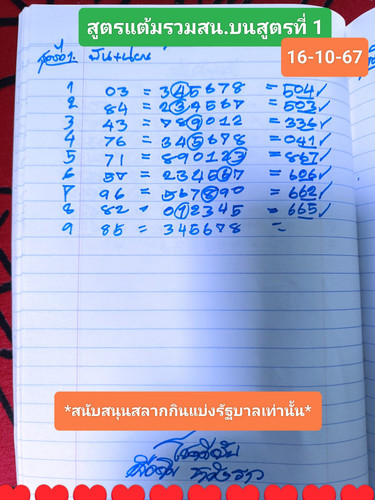 สูตรแต้มรวมสน.บนสูตรที่ 1
16-10-67
1 03 = 345678 = 504 ✓
2 84 = 234567 = 503 ✓
3 43 = 789012 = 336 ✓
4 76 = 345678 = 041 ✓
5 71 = 890123 = 867 ✓
6 57 = 234567 = 626 ✓
7 96 = 567890 = 662 ✓
8 82 = 012345 = 665 ✓
9 85 = 345678 =
*สนับสนุนสลากกินแบ่งรัฐบาลเท่านั้น*